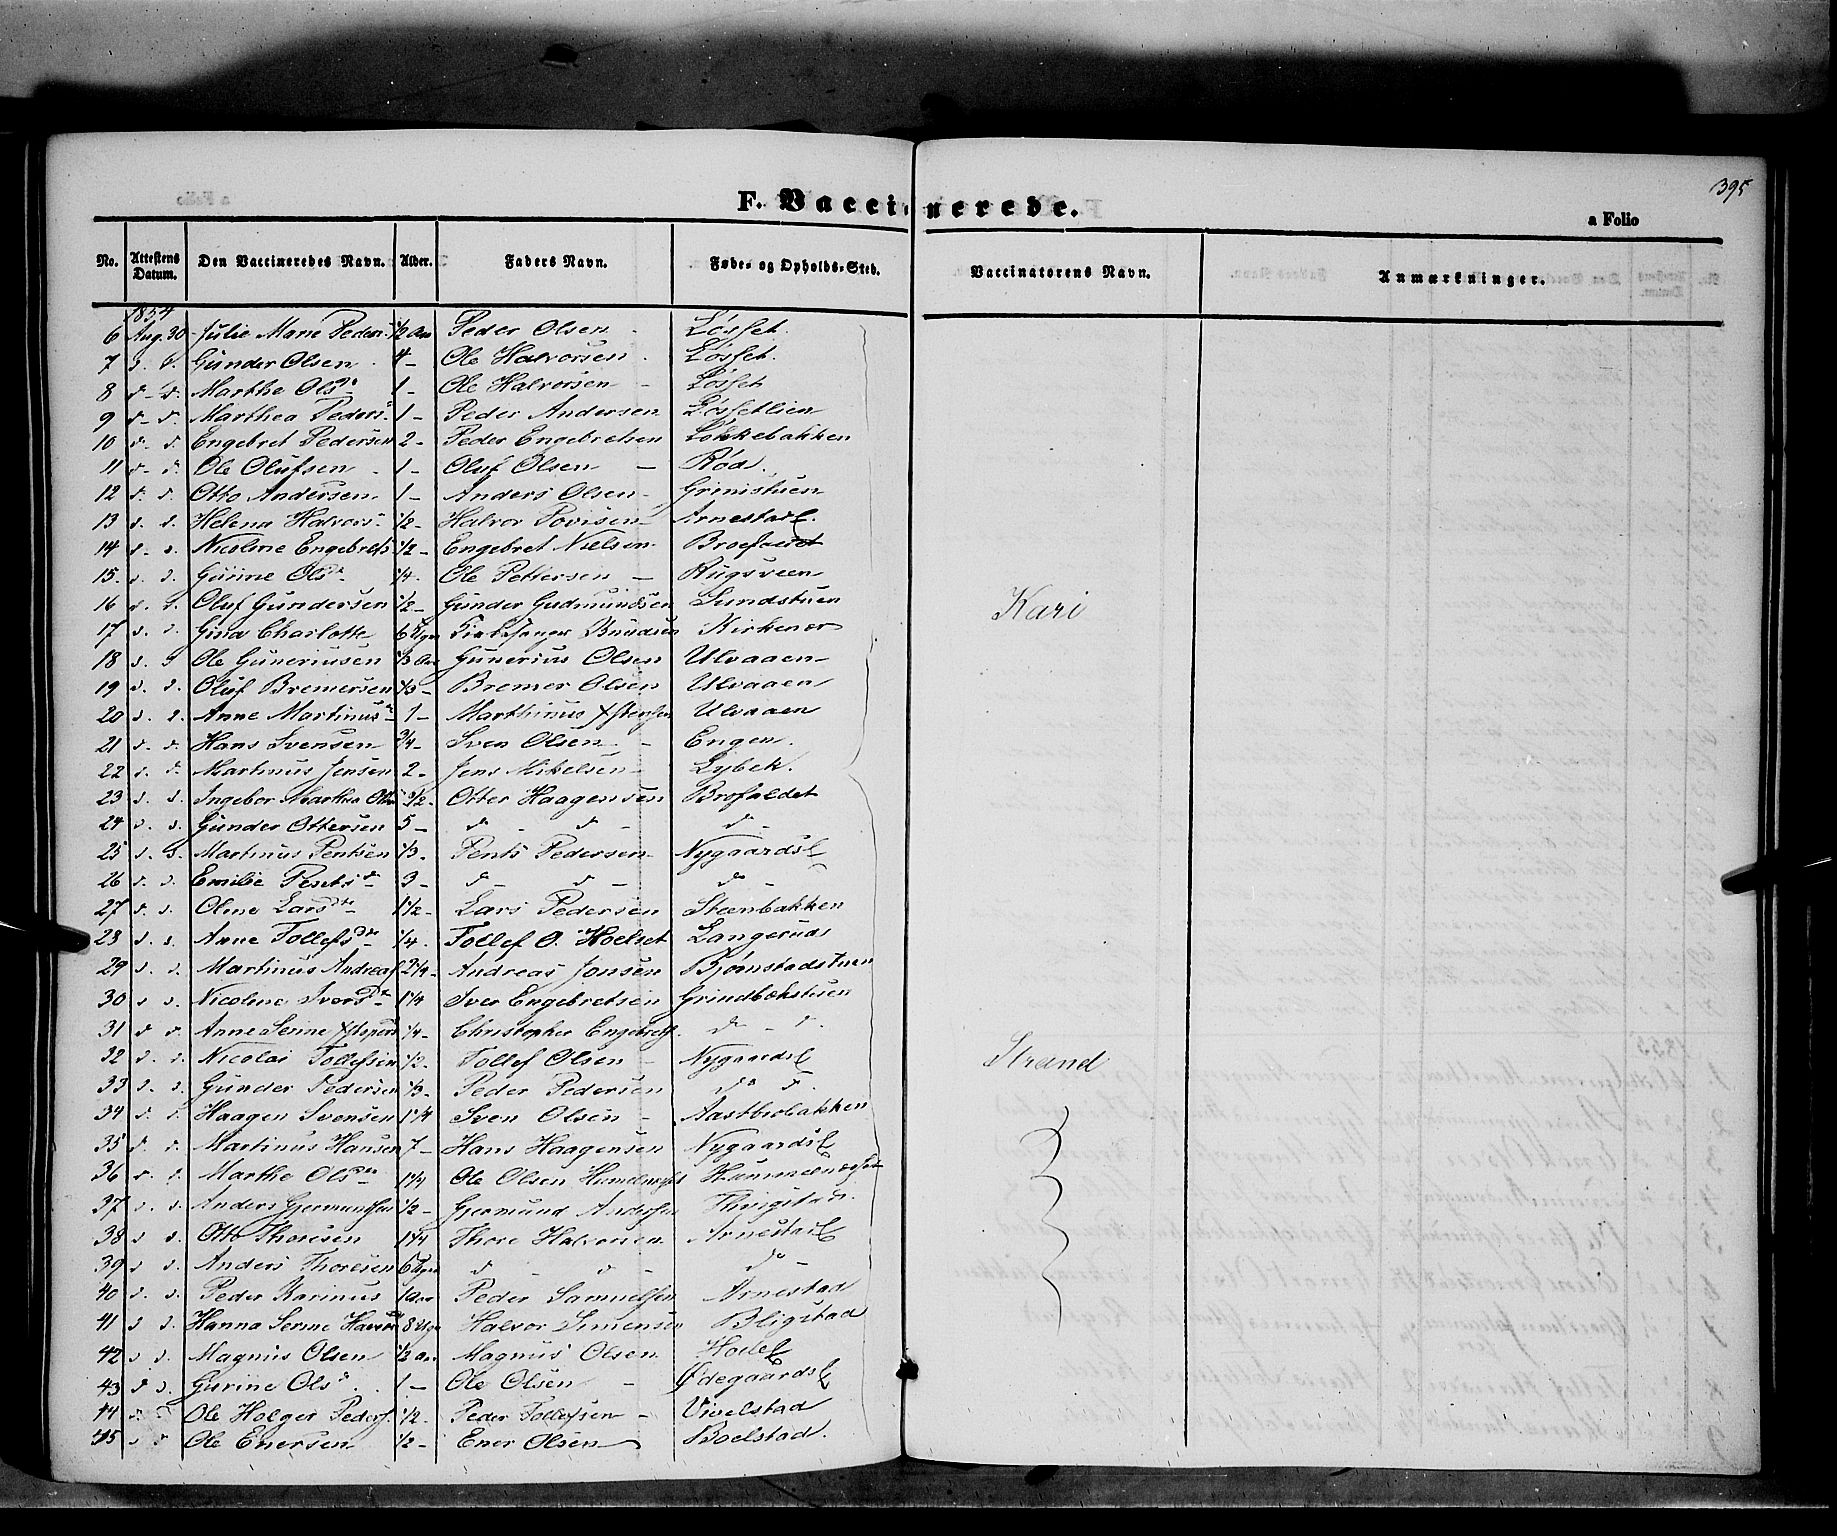 395
F. Vaccinerede.
a Folio
No. Attestens Datum. Den Vaccineredes Navn. Alder. Faders Navn. Føde- og Opholds-Sted. Vaccinatorens Navn. Anmærkninger.
1854
6 Aug. 30 Julie Marie Peders 1/2 Aar Peder Olsen Løsset.
7 d. d. Gunder Olsen 4 - Ole Halvorsen Løsset.
8 d - d. Marthe Olsd 1 - Ole Halvorsen - Løsset
9 d - d. Marthea Peders 1 - Peder Andersen Løssetlien
10 d. d. Engebret Pedersen 2 - Peder Engebretsen Løkkebakken
11 d - d. Ole Olufsen 1 - Oluf Olsen - Rød.
12 d. d. Otto Andersen 1 - Anders Olsen - Grinistuen
13 d. d. Helena Halvors 1/2 - Halvor Arnestad
14 d - d. Nicoline Engebrets 1/2 - Engebret Nielsen
15. d. d. Gurine Olsd 1/4. Ole Pettersen - Rugsveen
16 d. d. Oluf Gundersen 1/2 - Gunder Gudmundsen Sundstuen Kari
17 d. d. Gina Charlotte 6 Knudsen Kirkenær
18 d. d Ole Guneriusen 1/3 Aar Gunerius Olsen Ulvaaen
19 d. d. Oluf Bremersen 1/3 - Bremer Olsen Ulvaaen
20 d. d. Anne Martinusd 1 - Marthinus Ulvaaen
21 d. d. Hans Svensen 3/4 - Sven Olsen - Engen.
22 d. d. Martinus Jensen 2 - Jens Mikelsen Lybek.
23 d. d. Ingebor Marthea Otter Haagensen Brofaldet
24 d. d. Gunder Ottersen 5 - d - d - d -
25 d. d. Martinus Pentsen 1/3. Pents Pedersen Nygaards
26 d. d. Emilie Pentsd 3 - d - d - do
27 d. d. Oline Larsdtr 1 1/2 - Lars Pedersen Steenbakken
28 d. d. Anne Tollefsdr 1/4. Tollef O. Hoelset Langeruds
29 d. d. Martinus Andreas 2 1/4 - Andreas Jonsen Bjørnstadstuen
30 d d. Nicoline Iversdr 1 1/4 Iver Engebretsen Grindbækstuen
31 d d. Anne Serine 1/4 - Christopher Engebretss. do - d.
32 d. d. Nicolai Tollefssen 1/2. Tollef Olsen Nygaards Strand
33 d. d. Gunder Pedersen 1/3 - Peder Pedersen do d.
34 d. d. Haagen Svensen 1 1/4 Sven Olsen - Aastbrobakken
35 d. d. Martinus Hansen 7 - Hans Haagensen Nygaards
36 d. d. Marthe Olsdtr 1 1/4 Ole Olsen
37 d. d. Anders Gjermundsen 1/2 - Gjermund Andersen
38 d. d. Otto Thoresen 1 1/4 Thore Halvorsen Arnestad
39 d d. Anders Thoresen 6 d - d - do -
40 d. d. Peder Karinus 1 Aar Peder Samuelsen Arnestad
41 d d. Hanna Serine 8 Halvor Simensen Bligstad
42 d d. Magnus Olsen 1/2 Aar Magnus Olsen
43 d d. Gurine Olsd. 1 - Ole Olsen - Ødegaards
44 d d Ole Holger Peders. 1/2. Peder Tollefsen - Vivelstad
45 d d Ole Enersen 1/2 - Ener Olsen Boelstad.